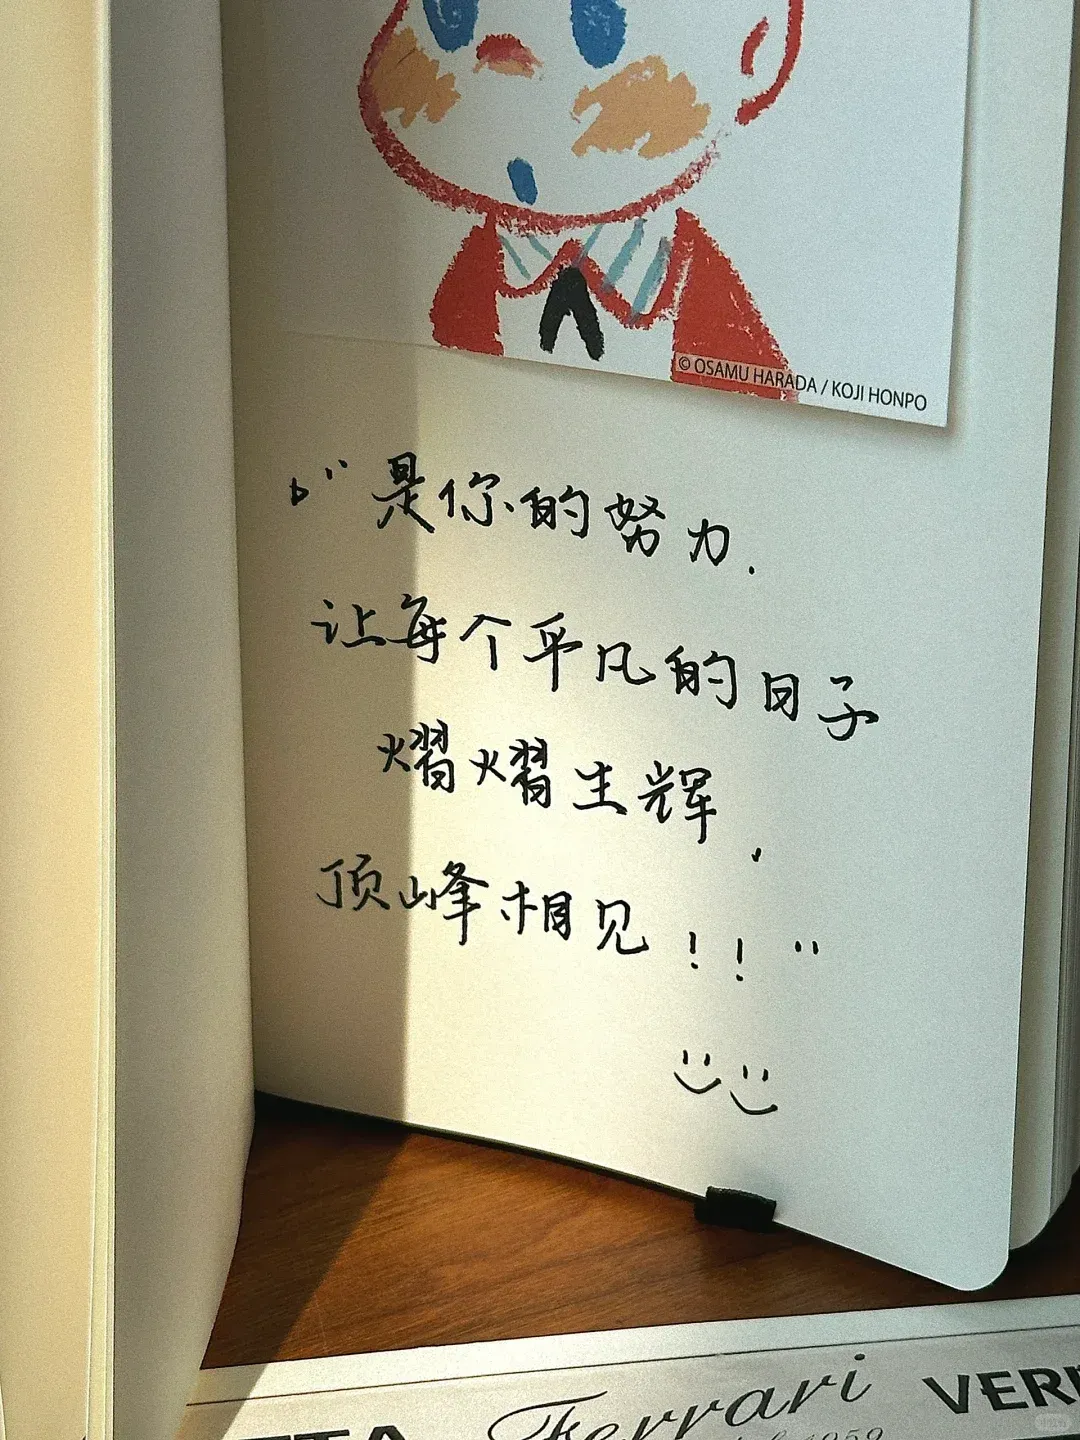 © OSAMU HARADA / KOJI HONPO
“是你的努力.
让每个平凡的日子
熠熠生辉,
顶峰相见!!”
Ferrari
1959